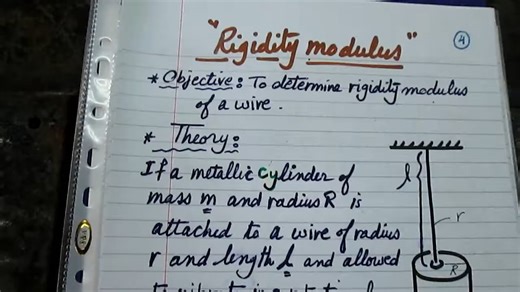 "Rigidity modulus"
4
* Objective: To determine rigidity modulus
of a wire.
* Theory:
If a metallic cylinder of
mass m and radius R is
attached to a wire of radius
r and length l and allowed
l
r
R